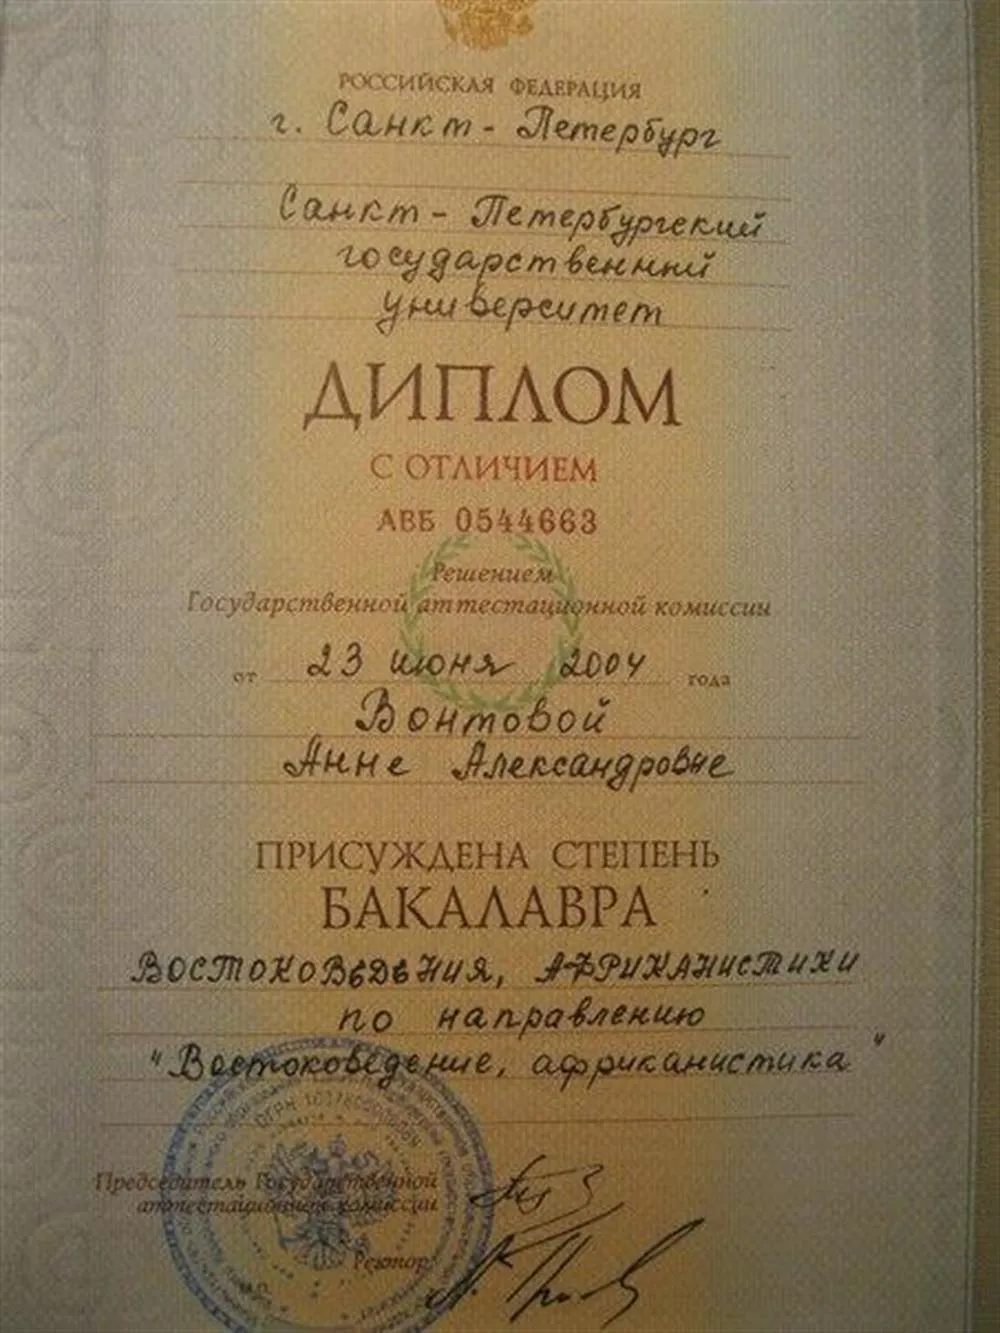 РОССИЙСКАЯ ФЕДЕРАЦИЯ
г. Санкт-Петербург
Санкт-Петербургский
государственный
университет
ДИПЛОМ
С ОТЛИЧИЕМ
АВБ 0544663
Решением
Государственной аттестационной комиссии
от 23 июня 2004 года
Вонтовой
Анне Александровне
ПРИСУЖДЕНА СТЕПЕНЬ
БАКАЛАВРА
ВОСТОКОВЕДЕНИЯ, АФРИКАНИСТИКИ
по направлению
"Востоковедение, африканистика"
Председатель Государственной
аттестационной комиссии
Ректор